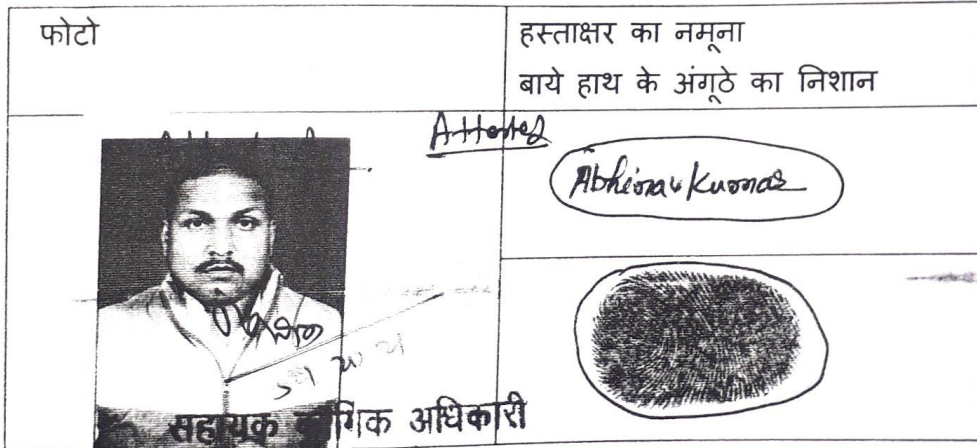 फोटो
हस्ताक्षर का नमूना
बाये हाथ के अंगूठे का निशान
Attested
Abhinav Kumar
सहायक कार्मिक अधिकारी